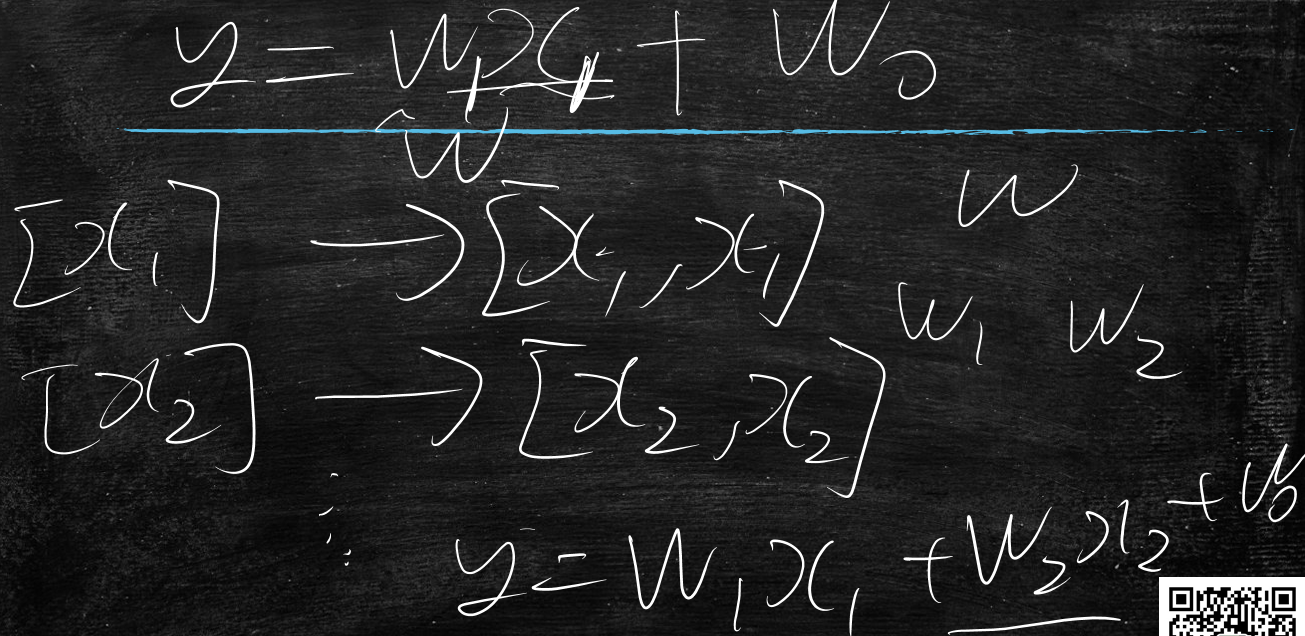 y = w₁x₁ + w₀
w
[x₁] → [x₁, x₁] w
w₁ w₂
[x₂] → [x₂, x₂]
y = w₁x₁ + w₂x₂ + w₀